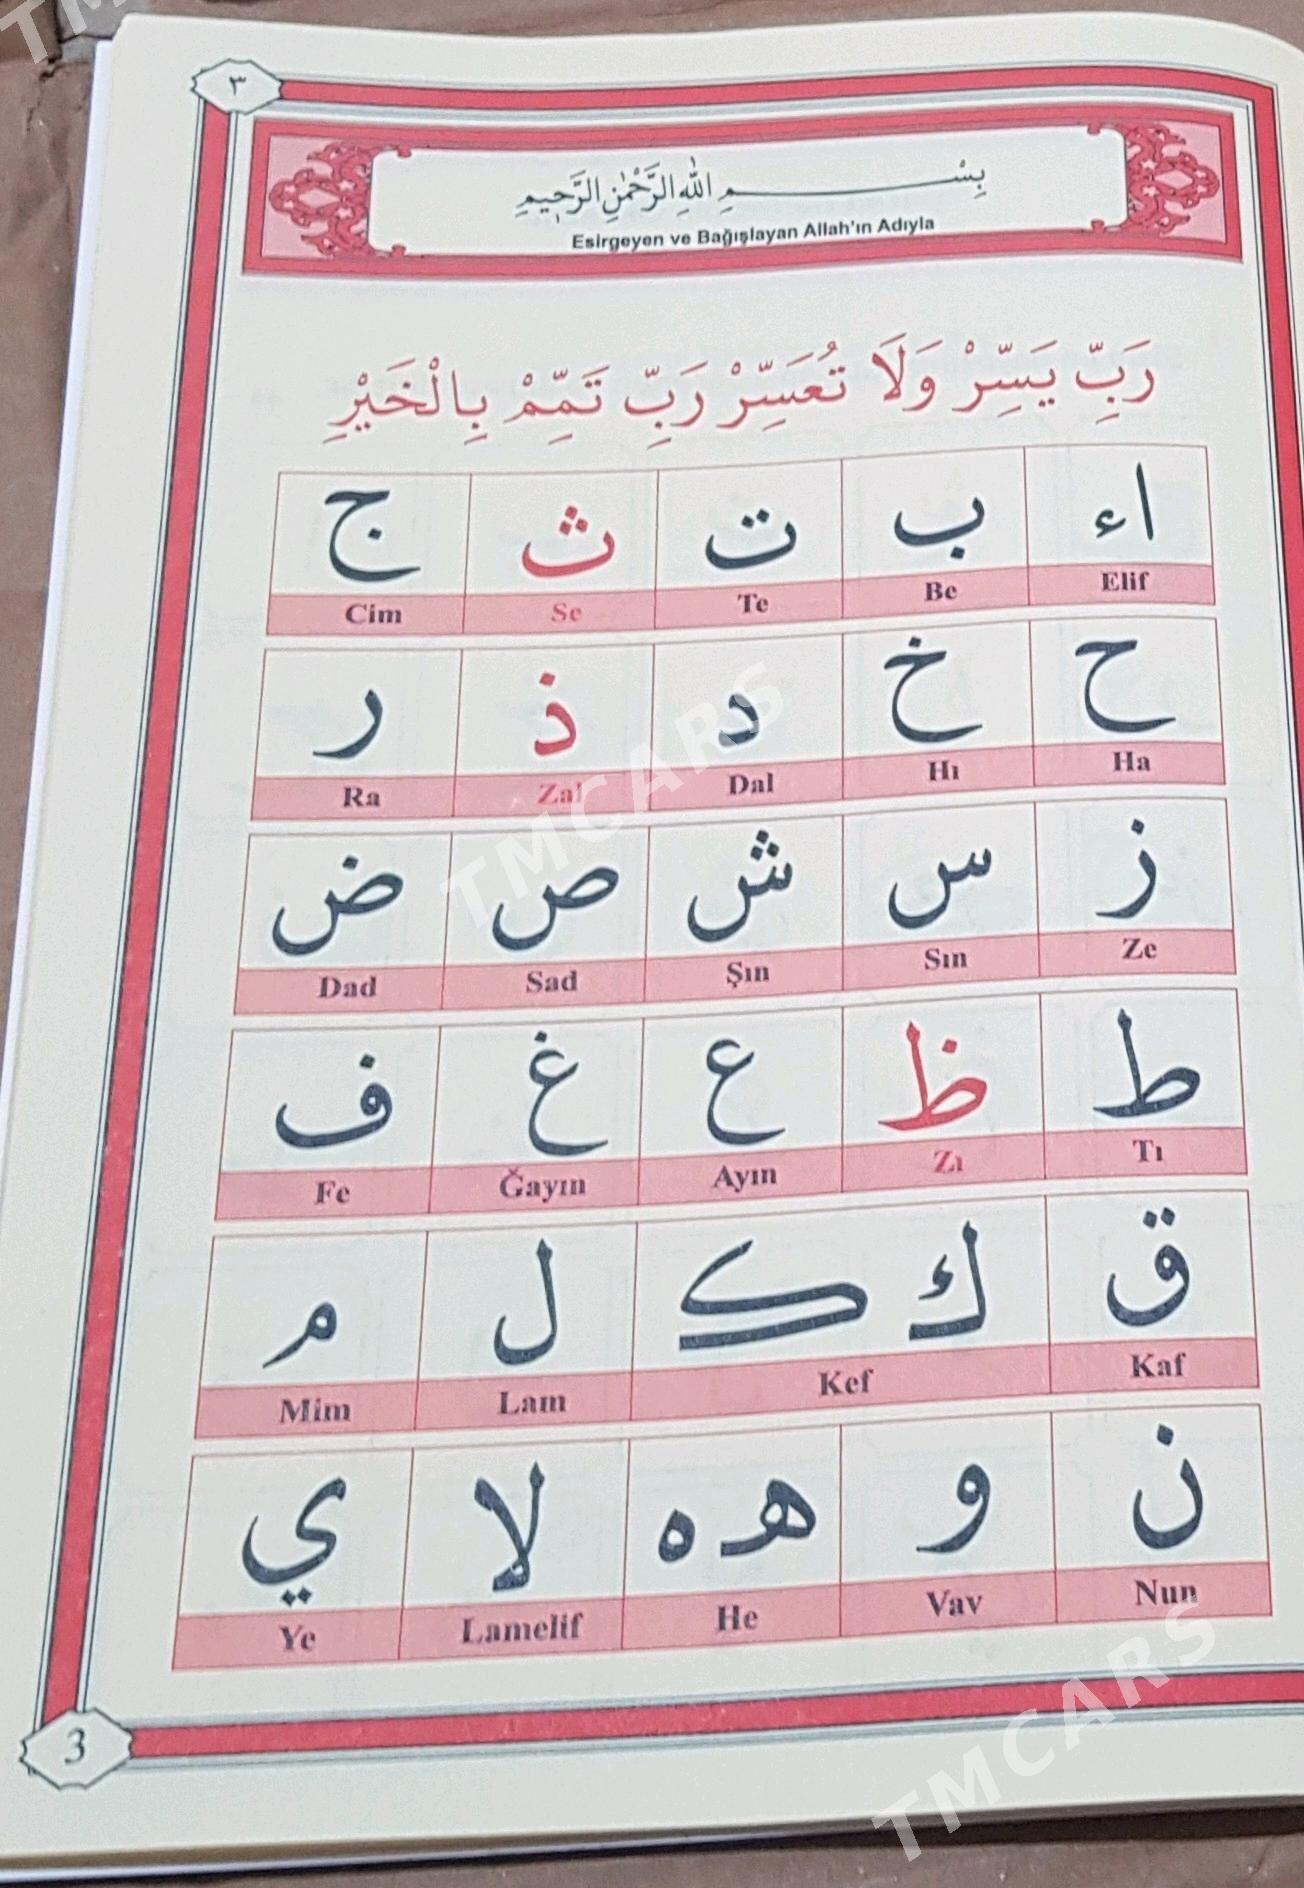 ٣
بِسْــــــــــمِ اللّٰهِ الرَّحْمٰنِ الرَّحِيمِ
Esirgeyen ve Bağışlayan Allah'ın Adıyla
رَبِّ يَسِّرْ وَلَا تُعَسِّرْ رَبِّ تَمِّمْ بِالْخَيْرِ
اء ب ت ث ج
Elif Be Te Se Cim
ح خ د ذ ر
Ha Hı Dal Zal Ra
ز س ش ص ض
Ze Sın Şın Sad Dad
ط ظ ع غ ف
Tı Zı Ayın Ğayın Fe
ق ك ک ل م
Kaf Kef Lam Mim
ن و هـ ه لا ي
Nun Vav He Lamelif Ye
3
TMCARS
TMCARS